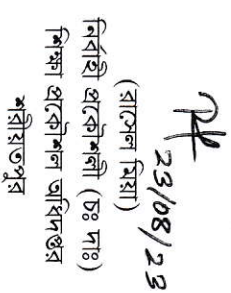 23/08/23
(রাসেল মিয়া)
নির্বাহী প্রকৌশলী (চঃ দাঃ)
শিক্ষা প্রকৌশল অধিদপ্তর
শরীয়তপুর